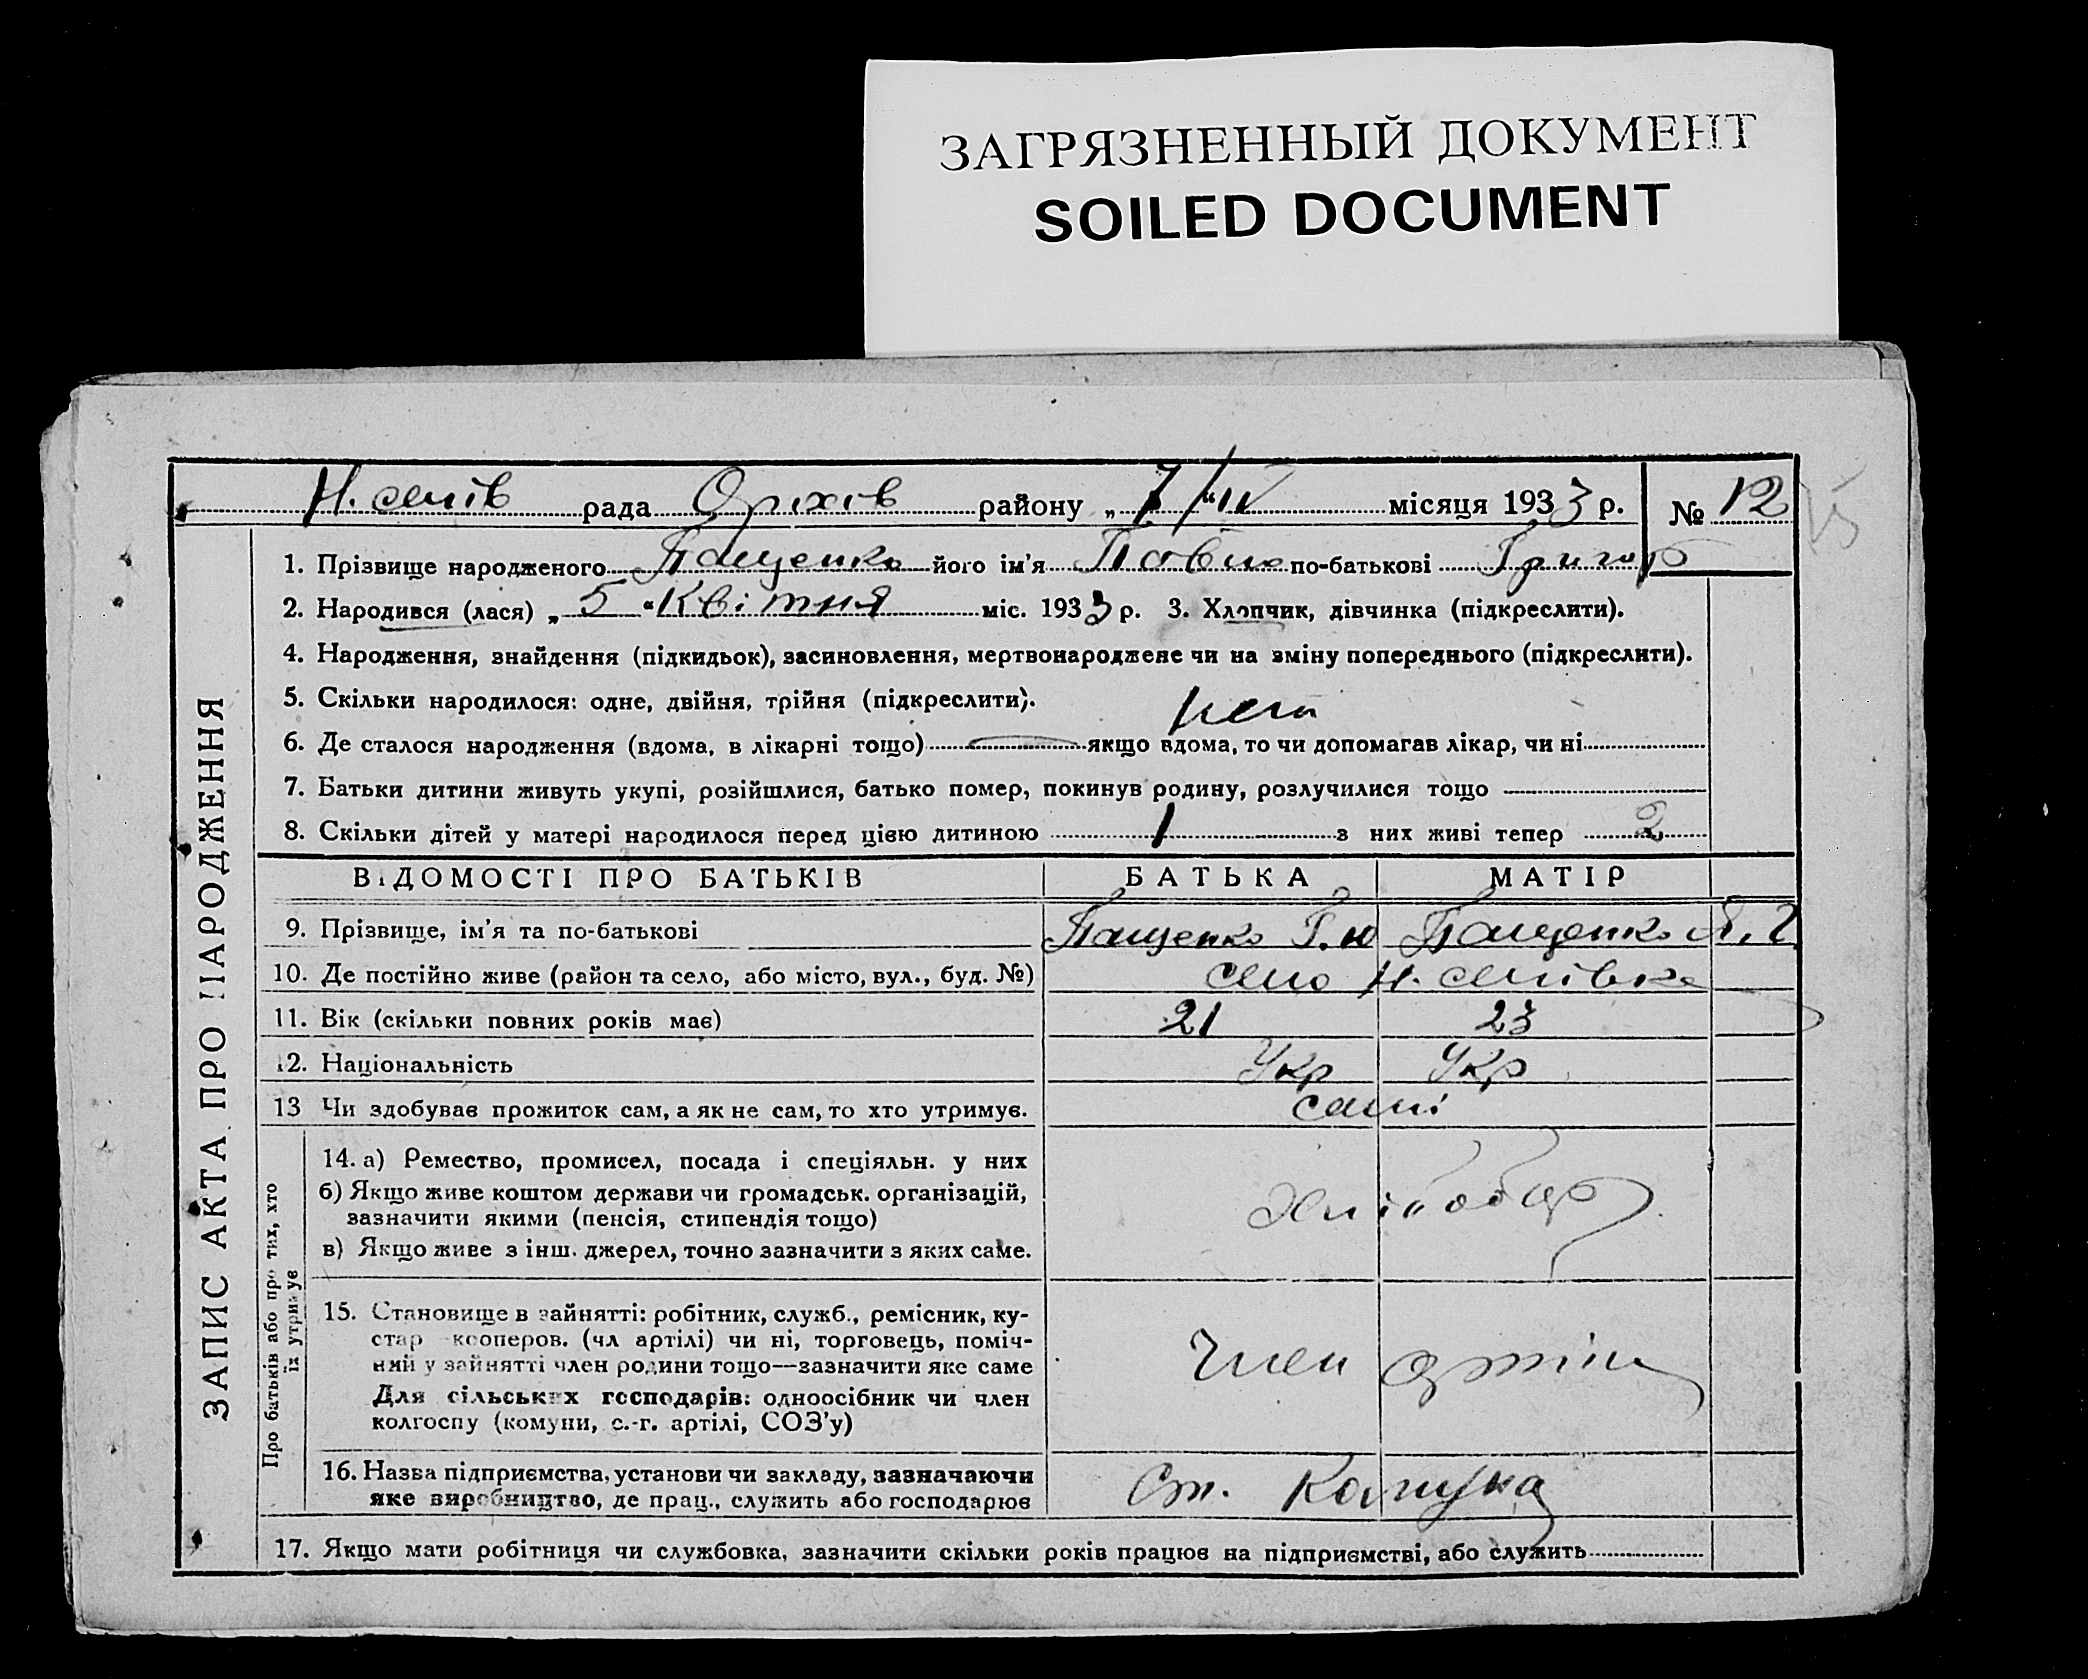 ЗАГРЯЗНЕННЫЙ ДОКУМЕНТ
SOILED DOCUMENT
Н. селів рада Оріхів району „ 7/“ IV місяця 1933 р. № 12
1. Прізвище народженого Пащенко його ім'я Павло по-батькові Григор
2. Народився (лася) „ 5 “ Квітня міс. 1933 р. 3. Хлопчик, дівчинка (підкреслити).
4. Народження, знайдення (підкидьок), засиновлення, мертвонароджене чи на зміну попереднього (підкреслити).
5. Скільки народилося: одне, двійня, трійня (підкреслити).
6. Де сталося народження (вдома, в лікарні тощо) якщо вдома, то чи допомагав лікар, чи ні
7. Батьки дитини живуть укупі, розійшлися, батько помер, покинув родину, розлучилися тощо
8. Скільки дітей у матері народилося перед цією дитиною 1 з них живі тепер 2
ЗАПИС АКТА ПРО НАРОДЖЕННЯ
ВІДОМОСТІ ПРО БАТЬКІВ БАТЬКА МАТІР
9. Прізвище, ім'я та по-батькові Пащенко Г. Ю Пащенко Я. Г.
10. Де постійно живе (район та село, або місто, вул., буд. №) село Н. селівка
11. Вік (скільки повних років має) 21 23
12. Національність Укр Укр
13 Чи здобуває прожиток сам, а як не сам, то хто утримує. самі
Про батьків або про тих, хто
їх утримує
14. а) Ремество, промисел, посада і спеціяльн. у них
б) Якщо живе коштом держави чи громадськ. організацій,
зазначити якими (пенсія, стипендія тощо)
Хлібобор
в) Якщо живе з інш. джерел, точно зазначити з яких саме.
15. Становище в зайнятті: робітник, служб., ремісник, ку-
стар кооперов. (чл артілі) чи ні, торговець, поміч-
ний у зайнятті член родини тощо—зазначити яке саме
Член артіли
Для сільських господарів: одноосібник чи член
колгоспу (комуни, с.-г. артілі, СОЗ'у)
16. Назва підприємства, установи чи закладу, зазначаючи
яке виробництво, де прац., служить або господарює
17. Якщо мати робітниця чи службовка, зазначити скільки років працює на підприємстві, або служить